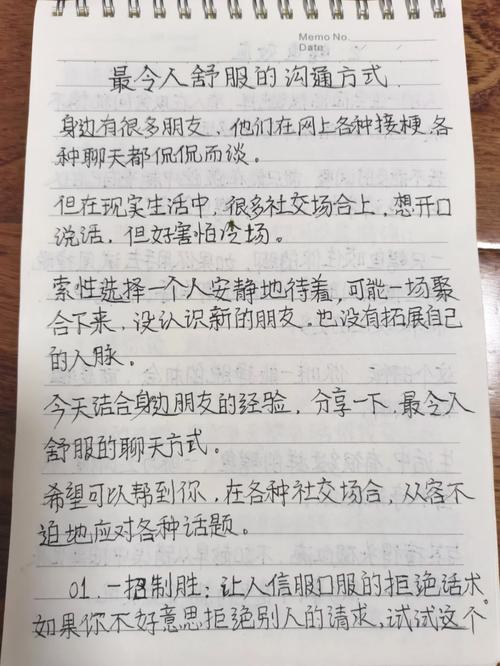 Memo No.
Date / /
最令人舒服的沟通方式
身边有很多朋友，他们在网上各种接梗，各
种聊天都侃侃而谈。
但在现实生活中，很多社交场合上，想开口
说话，但好害怕冷场。
索性选择一个人安静地待着，可能一场聚
合下来，没认识新的朋友，也没有拓展自己
的人脉。
今天结合身边朋友的经验，分享一下，最令人
舒服的聊天方式。
希望可以帮到你，在各种社交场合，从容不
迫地应对各种话题。
01.一招制胜：让人信服口服的拒绝话术
如果你不好意思拒绝别人的请求，试试这个